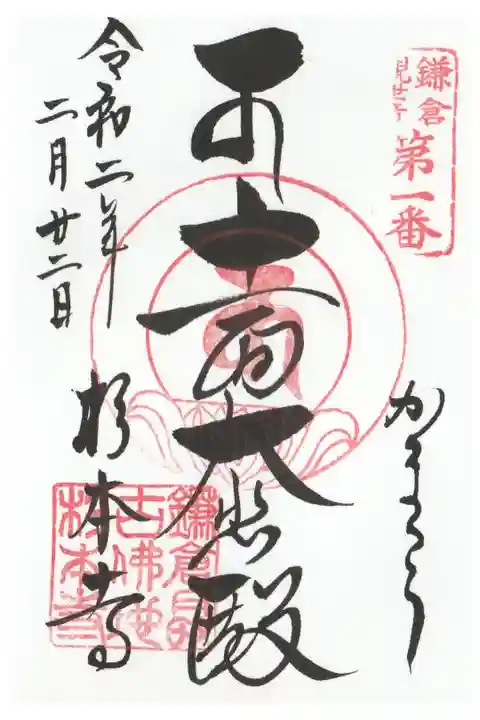 鎌倉
観世音
第一番
かまくら
十一面大悲殿
令和二年
二月廿二日
杉本寺
杉本寺